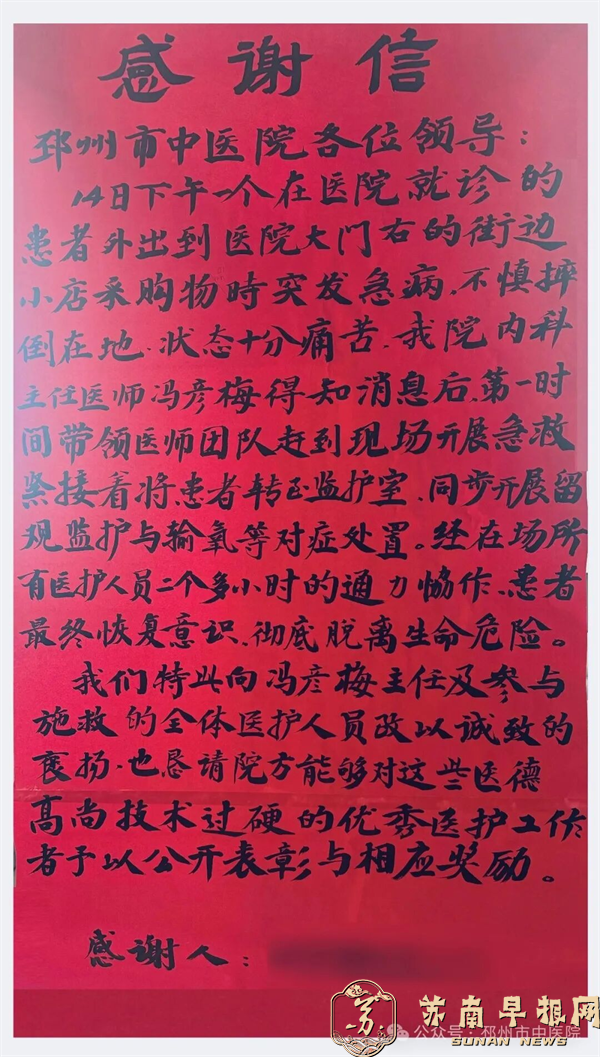 感谢信
邳州市中医院各位领导：
14日下午一个在医院就诊的
患者外出到医院大门右的街边
小店采购物時突发急病、不慎摔
倒在地、状态十分痛苦、我院内科
主任医师冯彦梅得知消息后、第一时
间带领医师团队赶到现场开展急救
紧接着将患者转至监护室、同步开展留
观监护与输氧等对症处置。经在场所
有医护人员二个多小时的通力協作、患者
最终恢复意识、彻底脱离生命危险。
我们特此向冯彦梅主任及参与
施救的全体医护人员致以诚致的
褒扬、也恳请院方能够对这些医德
高尚技术过硬的优秀医护工作
者予以公开表彰与相应奖励。
感谢人：
苏南早报网
SUNAN NEWS
公众号：邳州市中医院